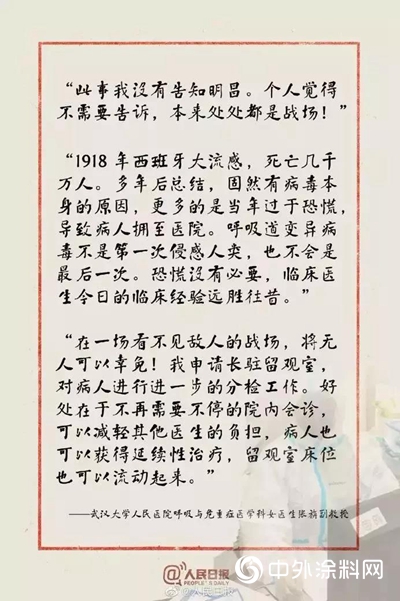 “此事我没有告知明昌。个人觉得
不需要告诉，本来处处都是战场！”
“1918 年西班牙大流感，死亡几千
万人。多年后总结，固然有病毒本
身的原因，更多的是当年过于恐慌，
导致病人拥至医院。呼吸道变异病
毒不是第一次侵感人类，也不会是
最后一次。恐慌没有必要，临床医
生今日的临床经验远胜往昔。”
“在一场看不见敌人的战场，将无
人可以幸免！我申请长驻留观室，
对病人进行进一步的分检工作。好
处在于不再需要不停的院内会诊，
可以减轻其他医生的负担，病人也
可以获得延续性治疗，留观室床位
也可以流动起来。”
——武汉大学人民医院呼吸与危重症医学科女医生张旃副教授
@人民日报
PEOPLE'S DAILY
@人民日报
中外涂料网